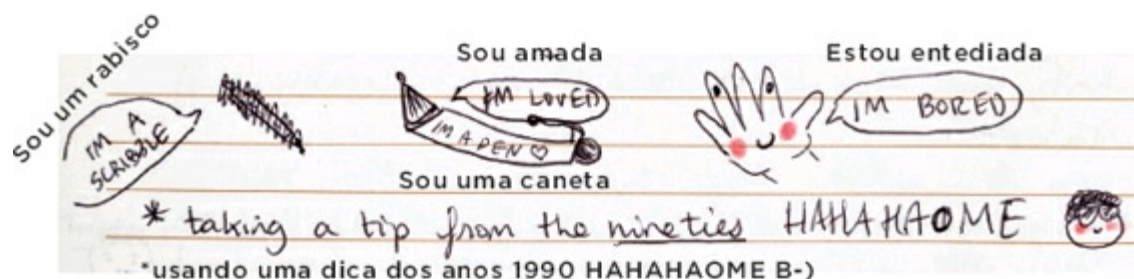 Sou um rabisco
I'M A
SCRIBBLE
Sou amada
I'M LOVED
I'M A PEN ♡
Sou uma caneta
Estou entediada
I'M BORED
* taking a tip from the nineties HAHAHAOME
*usando uma dica dos anos 1990 HAHAHAOME B-)